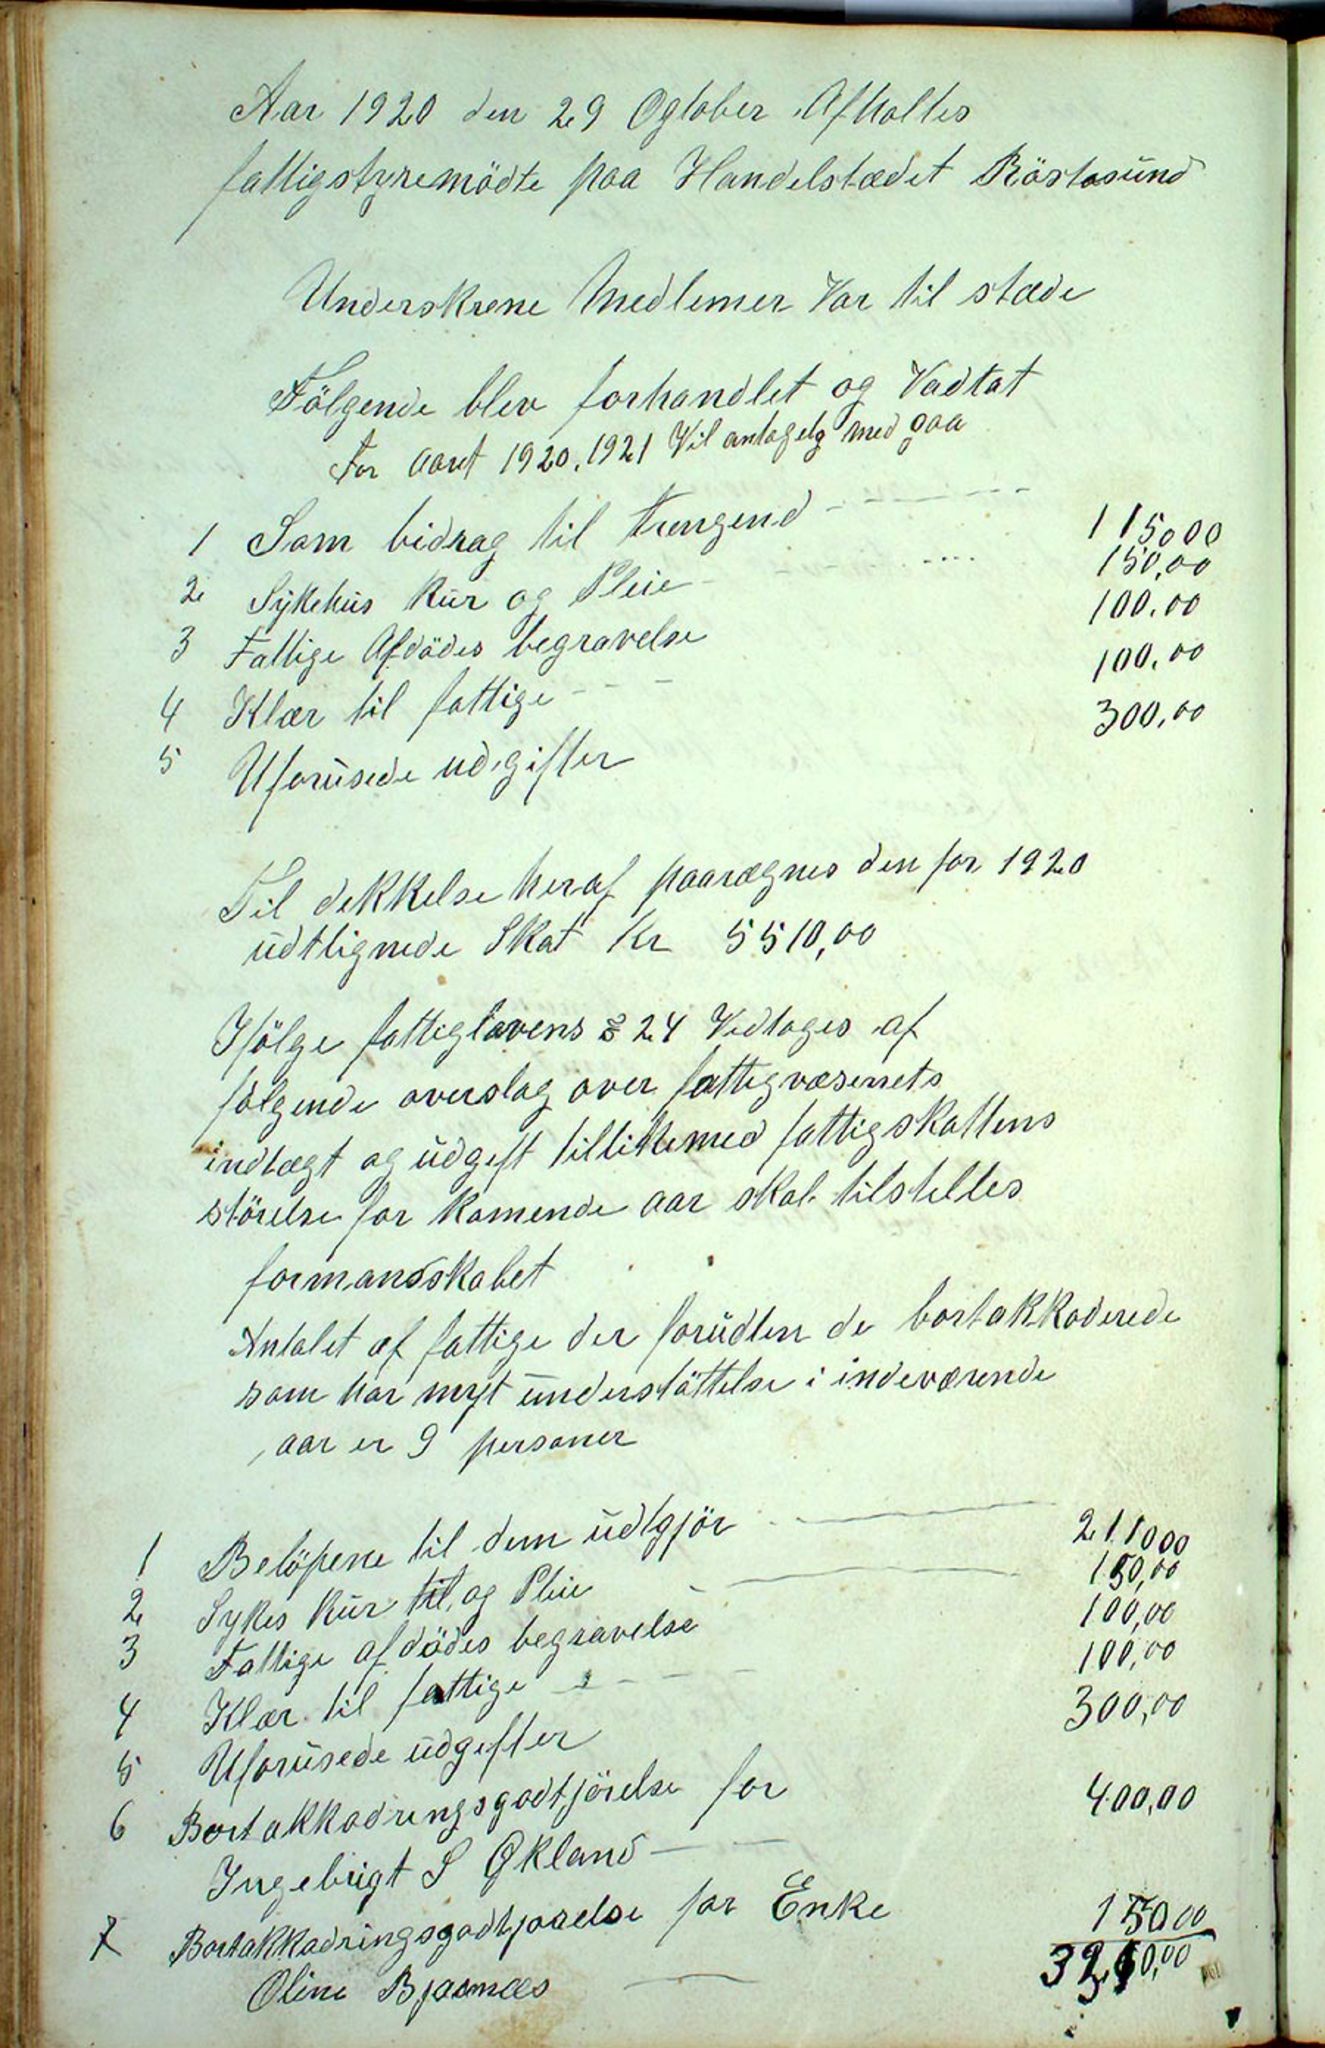 Aar 1920 den 29 Ogtober Afholtes
fattigstyremödte paa Handelstædet Röstasund
Underskrene Medlemer Var til stæde
Fölgende blev forhandlet og Vadtat
For Aaret 1920.1921 Vil antagelg med gaa
1 Som bidrag til trengend 115000
2 Sykehus Kur og Pleie 150,00
3 Fattige Afdödes begravelse 100,00
4 Klær til fattige 100,00
5 Uforusede udgifter 300,00
Til dekkelse heraf paarægnes den for 1920
udtlignede Skat Kr 5510,00
Ifölge fattiglovens § 24 Vedtoges af
følgende overslag over fattigvæsenets
indtægt og udgeft tillikemed fattigskattens
störelse for Komende aar skal tilstilles
formandskabet
Antalet af fattige der forudten de bortakkoderede
som har nyt understöttelse i indeværende
aar er 9 personer
1 Belöpene til dem udtgjör 211000
2 Sykes Kur til og Pleie 150,00
3 Fattige afdödes begravelse 100,00
4 Klær til fattige 100,00
5 Uforusede udgefter 300,00
6 Bortakkodringsgodtjörelse for
Ingebrigt S Økland 400,00
7 Bortakkadringsgodtjorelse for Enke
Oline Bjaanæs 15000